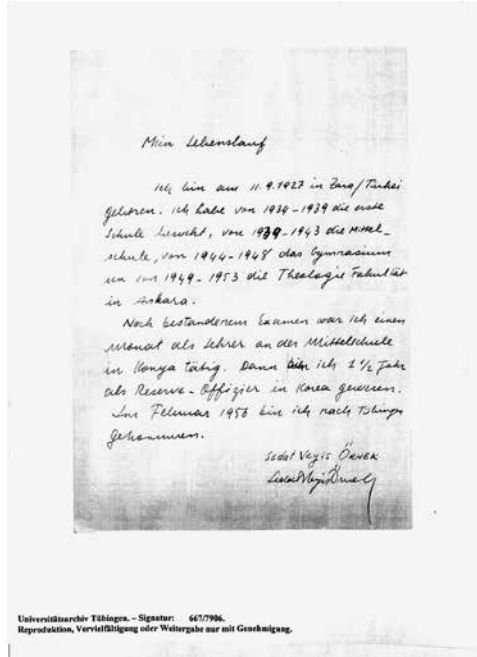 Mein Lebenslauf
Ich bin am 11.9.1927 in Zara/Türkei
geboren. Ich habe von 1934-1939 die erste
Schule besucht, von 1939-1943 die Mittel-
schule, von 1944-1948 das Gymnasium
un von 1949-1953 die Theologie Fakultät
in Ankara.
Nach bestandenem Examen war ich einen
Monat als Lehrer an der Mittelschule
in Konya tätig. Dann bin ich 1 1/2 Jahr
als Reserve-Offizier in Korea gewesen.
Im Februar 1956 bin ich nach Tübingen
gekommen.
Sedat Veyis ÖRNEK
Sedat Veyis Örnek
Universitätsarchiv Tübingen. – Signatur: 667/7906.
Reproduktion, Vervielfältigung oder Weitergabe nur mit Genehmigung.